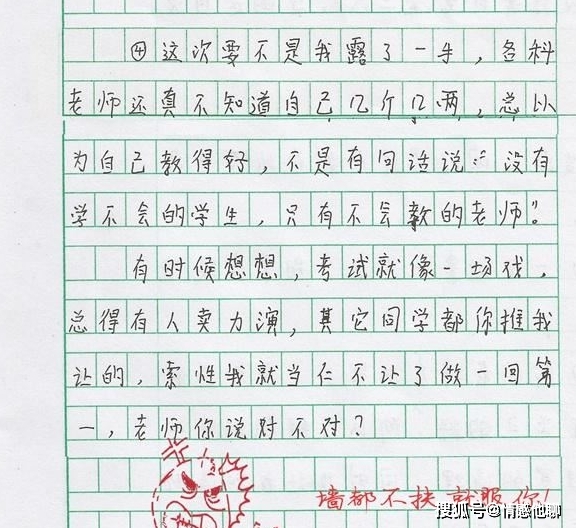 ④这次要不是我露了一手，各科
老师还真不知道自己几斤几两，总以
为自己教得好，不是有句话说：“没有
学不会的学生，只有不会教的老师”。
有时候想想，考试就像一场戏，
总得有人卖力演，其它同学都你推我
让的，索性我就当仁不让了做一回第
一，老师你说对不对？
墙都不扶就服你！
搜狐号@情感他聊